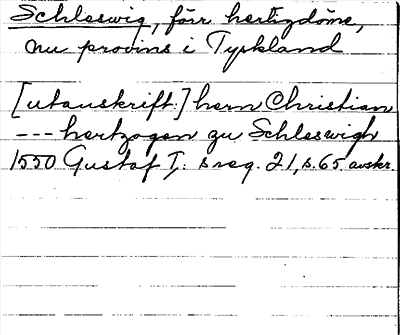 Schleswig, förr hertigdöme,
nu provins i Tyskland
[utanskrift:] hern Christian
--- hertzogen zu Schleswigh
1550 Gustaf I: s reg. 21, s. 65 avskr.